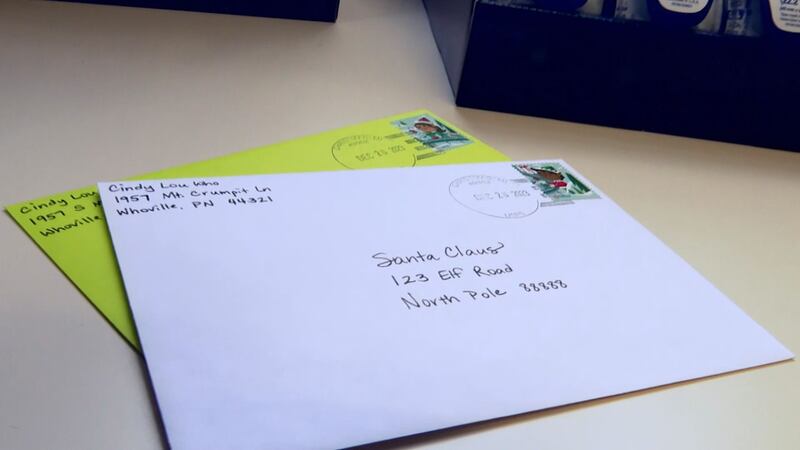 Cindy Lou Who
1957 Mt. Crumpit Ln
Whoville, PN 44321
Santa Claus
123 Elf Road
North Pole 88888
DEC 25 2023
Cindy Lou
1957 S
Whoville
DEC 25 2023